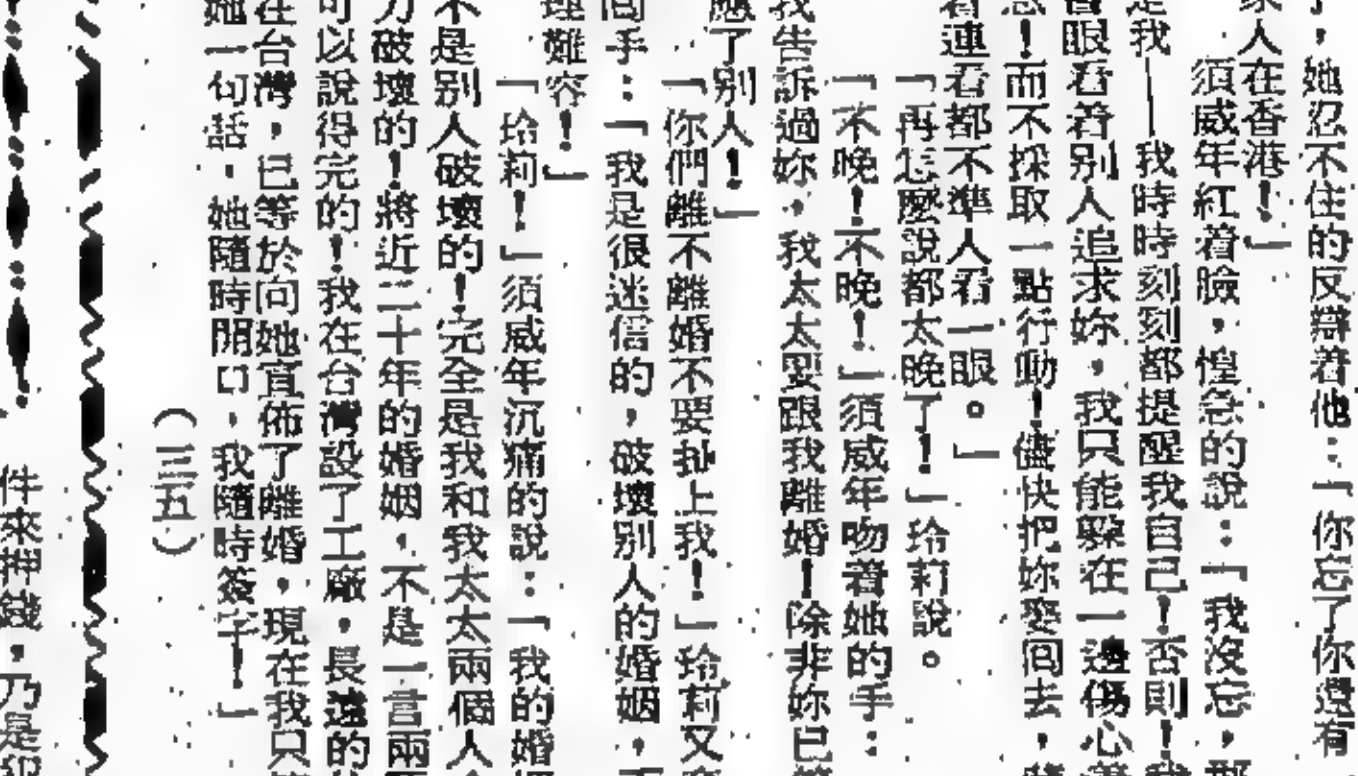 ，她忍不住的反辯着他：「你忘了你還有
家人在香港！」
須威年紅着臉，惶急的說：「我沒忘，
是我——我時時刻刻都提醒我自己！否則！我
眼看着別人追求妳，我只能躲在一邊傷心
！而不採取一點行動！儘快把妳娶回去，
着連看都不準人看一眼。」
「再怎麼說都太晚了！」玲莉說。
「不晚！不晚！」須威年吻着她的手：
我告訴過妳，我太太要跟我離婚！除非妳已
應了別人！」
「你們離不離婚不要扯上我！」玲莉又
回手：「我是很迷信的，破壞別人的婚姻，
理難容！」
「玲莉！」須威年沉痛的說：「我的婚
不是別人破壞的！完全是我和我太太兩個人
力破壞的！將近二十年的婚姻，不是一言兩
可以說得完的！我在台灣設了工廠，長遠的
在台灣，已等於向她宣佈了離婚，現在我只
她一句話，她隨時開口，我隨時簽字！」
（三五）
件來押錢，乃是